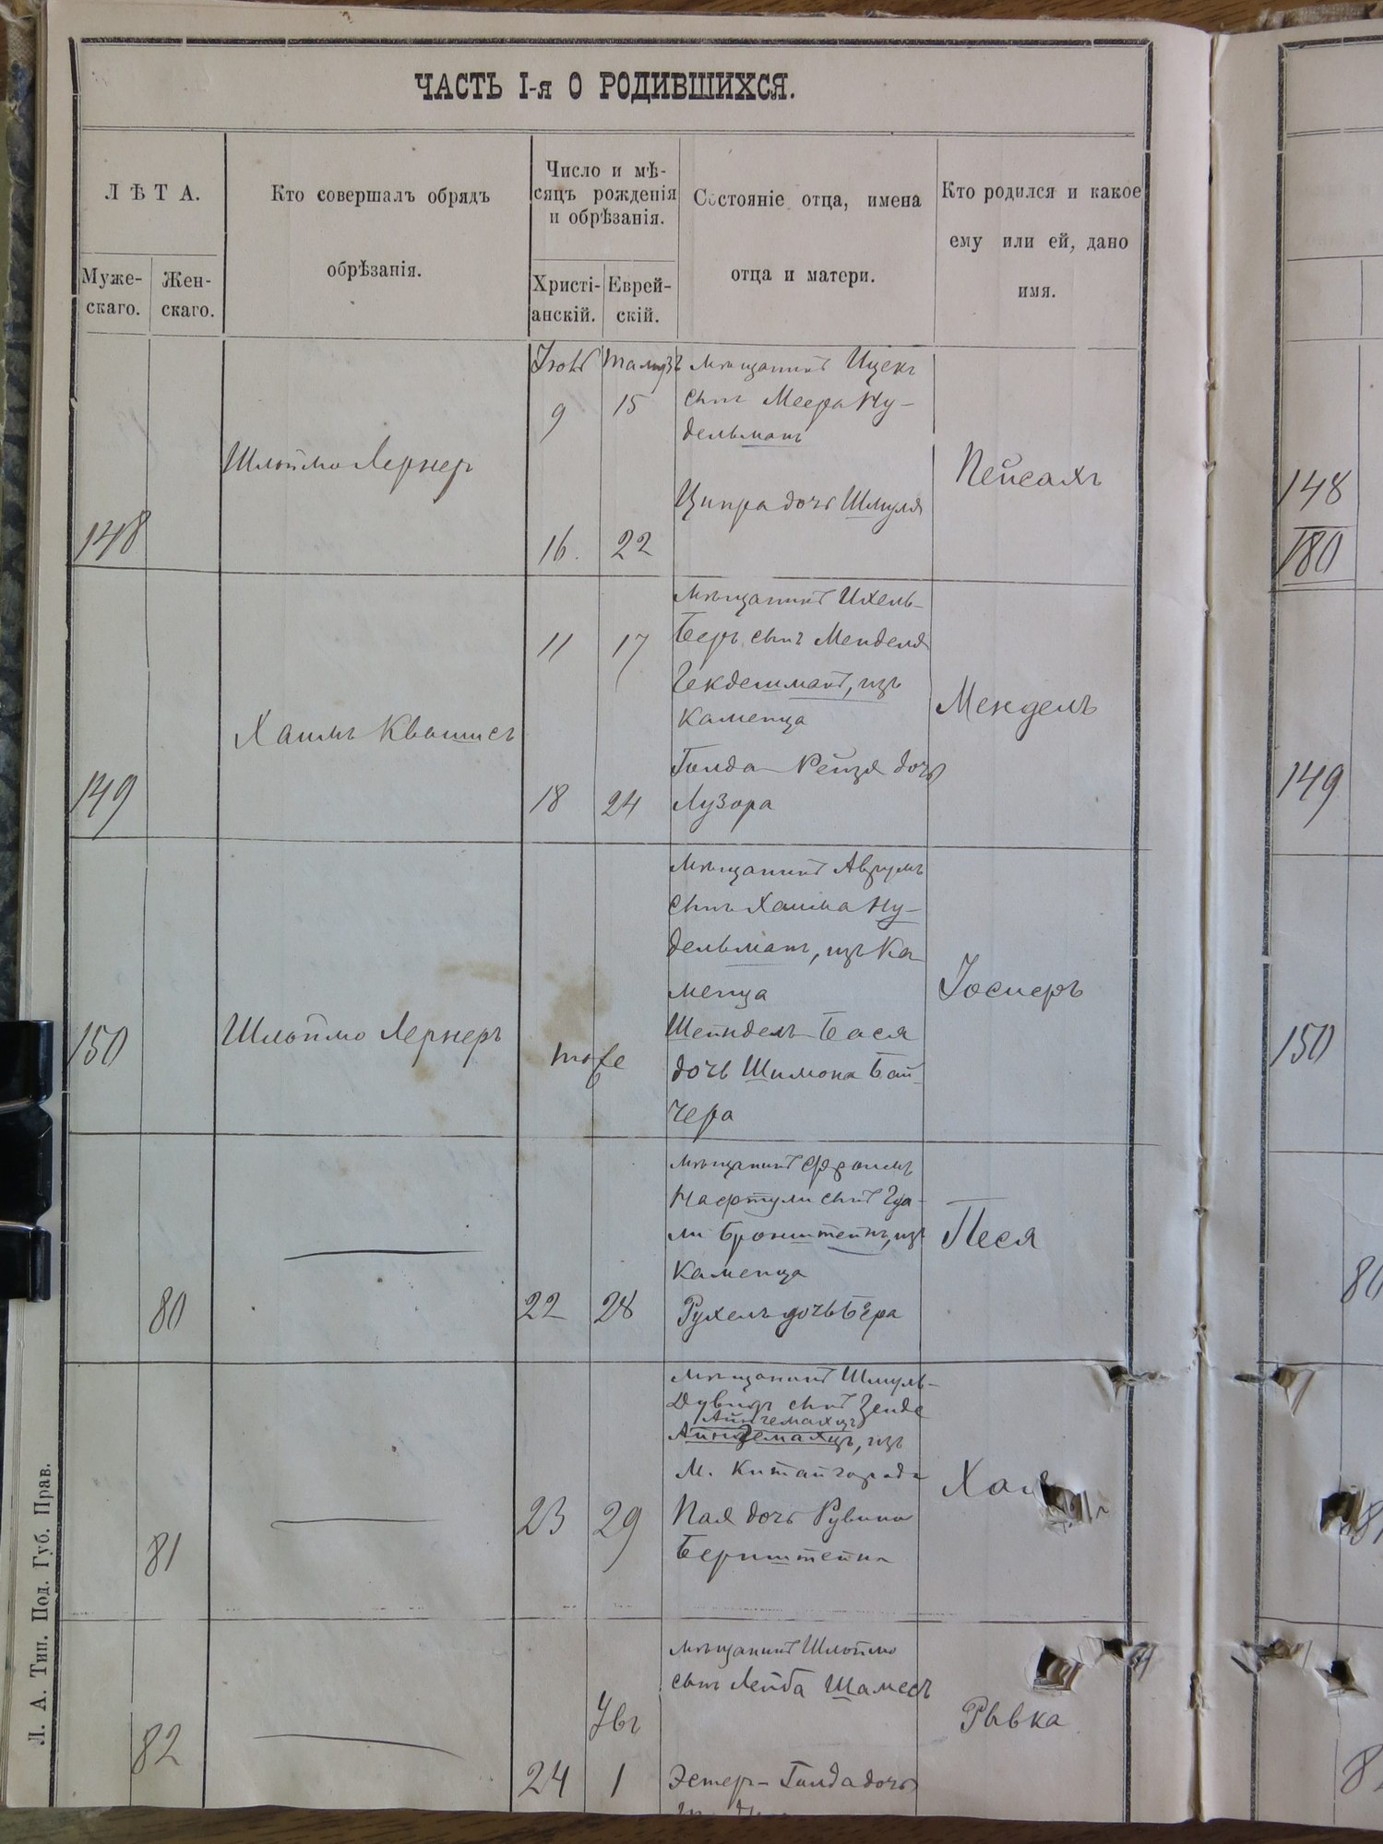 ЧАСТЬ I-я О РОДИВШИХСЯ.
ЛѢТА.
Муже-
скаго.
Жен-
скаго.
Кто совершалъ обрядъ
обрѣзанія.
Число и мѣ-
сяцъ рожденія
и обрѣзанія.
Христі-
анскій.
Еврей-
скій.
Состояніе отца, имена
отца и матери.
Кто родился и какое
ему или ей, дано
имя.
148
Шлоймо Лернеръ
Іюнь
Тамузъ
9
15
16.
22
мѣщанинъ Ицекъ
сынъ Меера Ну-
дельманъ
Ципра дочь Шмуля
Пейсахъ
148
180
149
Хаимъ Квашисъ
11
17
18
24
мѣщанинъ Ихель-
Беръ сынъ Менделя
Гекдешманъ, изъ
Каменца
Голда-Рейзя дочь
Лузора
Мендель
149
150
Шлоймо Лернеръ
тоже
мѣщанинъ Аврумъ
сынъ Хаима Ну-
дельманъ, изъ Ка-
менца
Шейндель-Бася
дочь Шимона Бай-
чера
Іосперъ
150
80
22
28
мѣщанинъ Фроимъ
Нафтули сынъ Гда-
ли Бронштейнъ, изъ
Каменца
Рухель дочь Бера
Песя
80
81
23
29
мѣщанинъ Шмуль-
Дувидъ сынъ Зейде
изъ
м. Китайгорода
Пая дочь Рувина
Бернштейна
81
82
24
Увъ
1
мѣщанинъ Шлоймо
сынъ Лейба Шамесъ
Эстеръ-Голда дочь
Рывка
Л. А. Тип. Под. Губ. Прав.